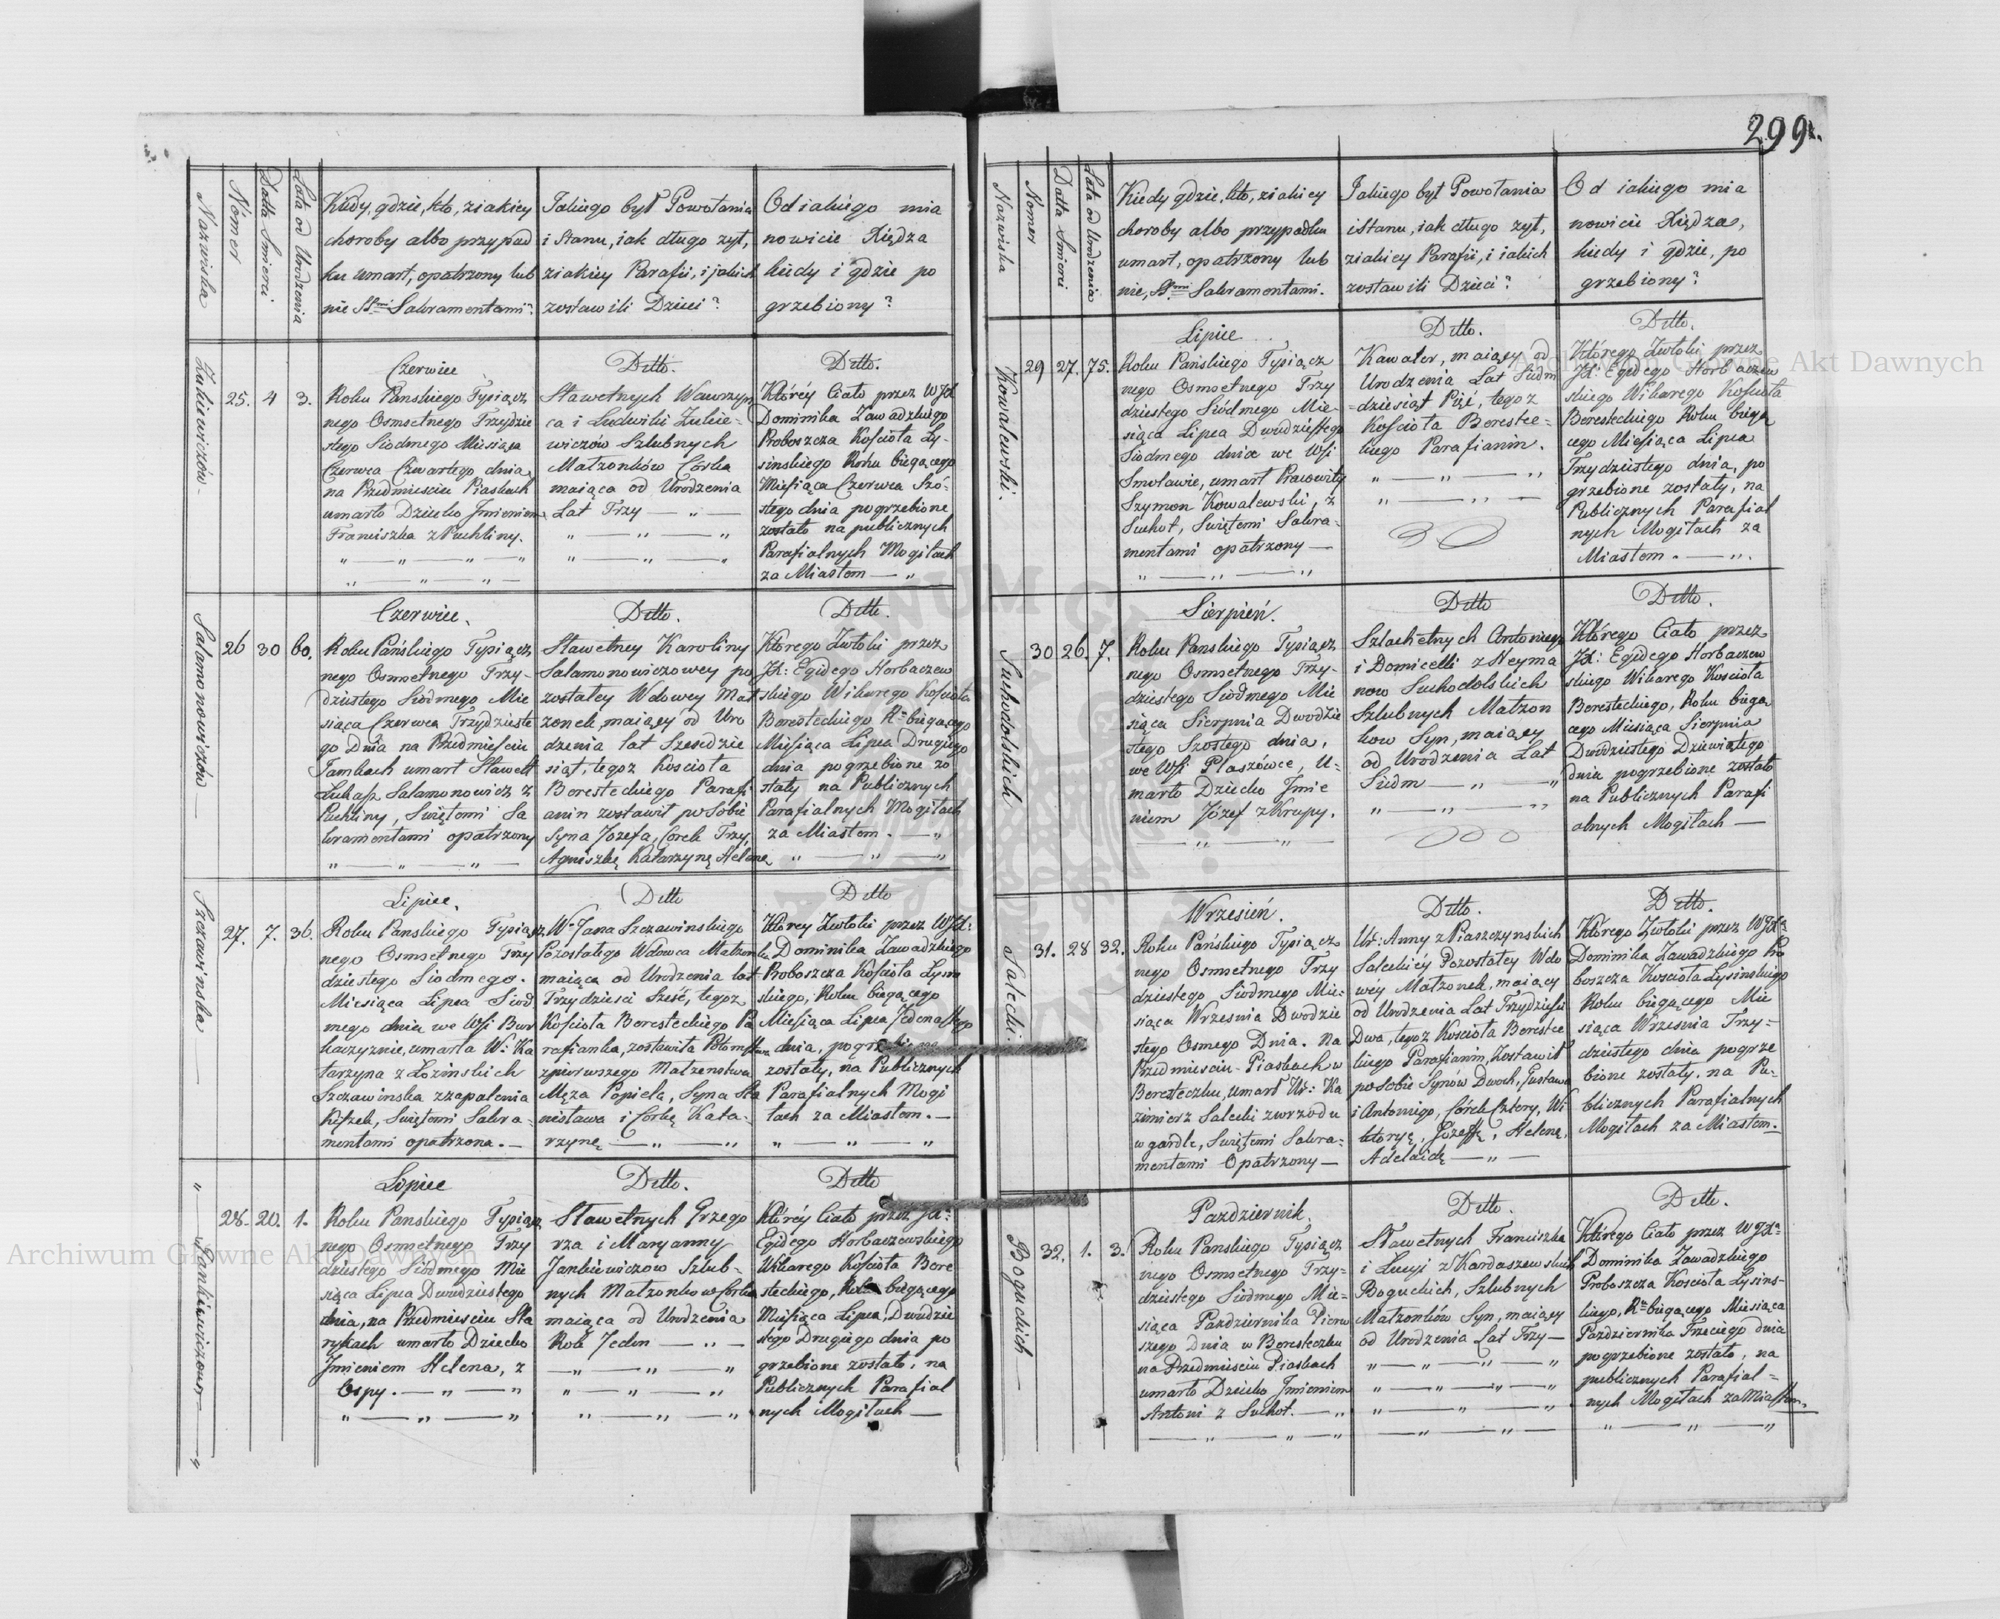 299
Nazwiska
Nomer
Datta Smierci
Lata od Urodzenia
Kiedy, gdzie, kto, z iakiey
choroby albo przypad
ku umarł, opatrzony lub
nie Stmi Sakramentami?
Jakiego był Powołania
i Stanu, iak długo żył,
z iakiey Parafii, i jakich
zostawili Dzieci?
Od iakiego mia
nowicie Xiędza
kiedy i gdzie po
grzebiony?
Żukiewiczów
25. 4 3.
Czerwiec
Roku Panskiego Tysiącz
nego Osmsetnego Trzydzie
stego Siodmego Miesiąca
Czerwca Czwartego dnia
na Przedmiesciu Piaskach
umarło Dziecko Jmieniem
Franciszka z Puchliny.
Ditto.
Sławetnych Wawrzyn
ca i Ludwiki Żukie-
wiczów Szlubnych
Małzonków Córka
maiąca od Urodzenia
Lat Trzy
Ditto.
Któréy Ciało przez WJX
Dominika Zawadzkiego
Proboszcza Kościoła Ły-
sinskiego Roku bieżącego
Miesiąca Czerwca Szó-
stego dnia pogrzebione
zostało na publicznych
Parafialnych Mogiłach
za Miastem
Salamonowiczów
26 30 60.
Czerwiec.
Roku Pańskiego Tysiącz
nego Osmsetnego Trzy-
dziestego Siodmego Mie
siąca Czerwca Trzydzieste
go Dnia na Przedmiesciu
Tamkach umarł Sławett
Łukasz Salamonowicz z
Puchliny, Świętemi Sa
kramentami opatrzony
Ditto.
Sławetney Karoliny
Salamonowiczowey po
zostałey Wdowey Mał
zonek, maiący od Uro
dzenia lat Szescdzie
siąt, tegoz Kosciola
Beresteckiego Parafi
anin zostawił po Sobie
Syna Jozefa, Corek Trzy,
Agniszkę Katarzynę Helenę
Ditto.
Którego Zwłoki przez
JX: Egidego Horbaczew
skiego Wikarego Kościoła
Beresteckiego Ru bieżącego
Miesiąca Lipca Drugiego
dnia pogrzebione zo
stały na Publicznych
Parafialnych Mogiłach
za Miastem.
Szczawinska
27. 7. 36.
Lipiec.
Roku Panskiego Tysiącz
nego Osmsetnego Trzy
dziestego Siodmego.
Miesiąca Lipca Siod
mego dnia we Wsi Bur
kaczyznie, umarła W: Ka
tarzyna z Łozinskich
Szczawinska z zapalenia
Kiszek, Świętemi Sakra-
mentami opatrzona.
Ditto
Wo Jana Szczawinskiego
Pozostałego Wdowca Małzonka
maiąca od Urodzenia lat
Trzydziesci Sześć, tegoz
Kościoła Beresteckiego Pa
rafianka, zostawiła Potomstwa
z pierwszego Małzenstwa
Męza Popiela, Syna Sta
nisława i Corkę Kata-
rzynę
Ditto
Którey Zwłoki przez WJX:
Dominika Zawadzkiego
Proboszcza Kościoła Łysin
skiego, Roku bieżącego
Miesiąca Lipca Jedenastego
dnia, pogrzebione
zostały, na Publicznych
Parafialnych Mogi
łach za Miastem.
Jankiewiczowu
28. 20. 1.
Lipiec
Roku Panskiego Tysiącz
nego Osmsetnego Trzy
dziestego Siódmego Mie
siąca Lipca Dwudziestego
dnia, na Przedmiesciu Sta
rykach umarło Dziecko
Jmieniem Helena, z
Ospy.
Ditto.
Sławetnych Grzego
rza i Maryanny
Jankiewiczow Szlub-
nych Małzonkow Corka
maiąca od Urodzenia
Rok Jeden
Ditto
Któréy Ciało przez JX:
Egidego Horbaczewskiego
Wikarego Kościoła Bere
steckiego, Roku bieżącego
Miesiąca Lipca, Dwudzie
stego Drugiego dnia po
grzebione zostało, na
Publicznych Parafial
nych Mogiłach
Nazwiska
Nomer
Datta Smierci
Lata od Urodzenia
Kiedy gdzie, kto, z iakiey
choroby albo przypadku
umarł, opatrzony lub
nie, Stmi Sakramentami.
Jakiego był Powołania
i Stanu, iak długo żył,
z iakiey Parafii, i iakich
zostawili Dzieci?
Od iakiego mia
nowicie Xiędza,
kiedy i gdzie, po
grzebiony?
Kowalewski.
29 27. 75.
Lipiec
Roku Pańskiego Tysiącz
nego Osmsetnego Trzy
dziestego Siódmego Mie-
siąca Lipca Dwudziestego
Siodmego dnia we Wsi
Smolawie, umarł Pracowity
Szymon Kowalewski, z
Suchot, Świętemi Sakra-
mentami opatrzony
Ditto.
Kawaler, maiący od
Urodzenia Lat Siedm
dziesiąt Pięć, tegoz
Kościoła Bereste-
ckiego Parafianin.
Ditto.
Którego Zwłoki przez
JX: Egidego Horbaczew
skiego Wikarego Kościoła
Beresteckiego Roku bieżą
cego Miesiąca Lipca
Trzydziestego dnia, po
grzebione zostały, na
Publicznych Parafial
nych Mogiłach za
Miastem.
Suchodolskich
30 26. 7.
Sierpień.
Roku Panskiego Tysiącz
nego Osmsetnego Trzy-
dziestego Siódmego Mie
siąca Sierpnia Dwudzie
stego Szostego dnia,
we Wsi Płaszówce, U-
marło Dziecko Jmie
niem Józef z Krupy.
Ditto
Szlachetnych Antoniego
i Domicelli z Heyma
now Suchodolskich
Szlubnych Małzon
kow Syn, maiący
od Urodzenia Lat
Siedm
Ditto.
Którego Ciało przez
JX: Egidego Horbaczew
skiego Wikarego Kościoła
Beresteckiego, Roku bieżą
cego Miesiąca Sierpnia
Dwudziestego Dziewiątego
dnia pogrzebione zostało
na Publicznych Parafi
alnych Mogiłach
Salecki
31. 28 32.
Wrzesień.
Roku Pańskiego Tysiącz
nego Osmsetnego Trzy
dziestego Siodmego Mie-
siąca Wrzesnia Dwudzie
stego Osmego Dnia. Na
Przedmiesciu Piaskach w
Beresteczku, umarł Ur: Ka
zimierz Salecki z wrzodu
w gardle, Świętemi Sakra-
mentami Opatrzony
Ditto.
Ur: Anny z Piaszczynskich
Saleckiéy Pozostałey Wdo
wey Małzonek, maiący
od Urodzenia Lat Trzydziesci
Dwa, tegoz Kościoła Bereste
ckiego Parafianin, Zostawił
po Sobie Synów Dwoch, Gustawa
i Antoniego, Córek Cztery, Wi
ktoryę, Jozeffę, Helenę,
Adelaidę
Ditto.
Którego Zwłoki przez WJXa
Dominika Zawadzkiego Pro
boszcza Kościoła Łysinskiego
Roku bieżącego Mie
siąca Wrzesnia Trzy-
dziestego dnia pogrze
bione zostały, na Pu-
blicznych Parafialnych
Mogiłach za Miastem.
Boguckich
32. 1. 3.
Pazdziernik.
Roku Panskiego Tysiącz
nego Osmsetnego Trzy-
dziestego Siodmego Mie-
siąca Pazdziernika Pierw
szego Dnia w Beresteczku
na Przedmiesciu Piaskach
umarło Dziecko Jmieniem
Antoni z Suchot.
Ditto.
Sławetnych Franciszka
i Lucyi z Kardaszewskich
Boguckich, Szlubnych
Małzonków Syn, maiący
od Urodzenia Lat Trzy
Ditto.
Którego Ciało przez WJXa
Dominika Zawadzkiego
Proboszcza Kościoła Łysins-
kiego, Ru bieżącego Miesiąca
Pazdziernika Trzeciego dnia
pogrzebione zostało, na
publicznych Parafial-
nych Mogiłach za Miastem.
Archiwum Główne Akt Dawnych
Główne Akt Dawnych